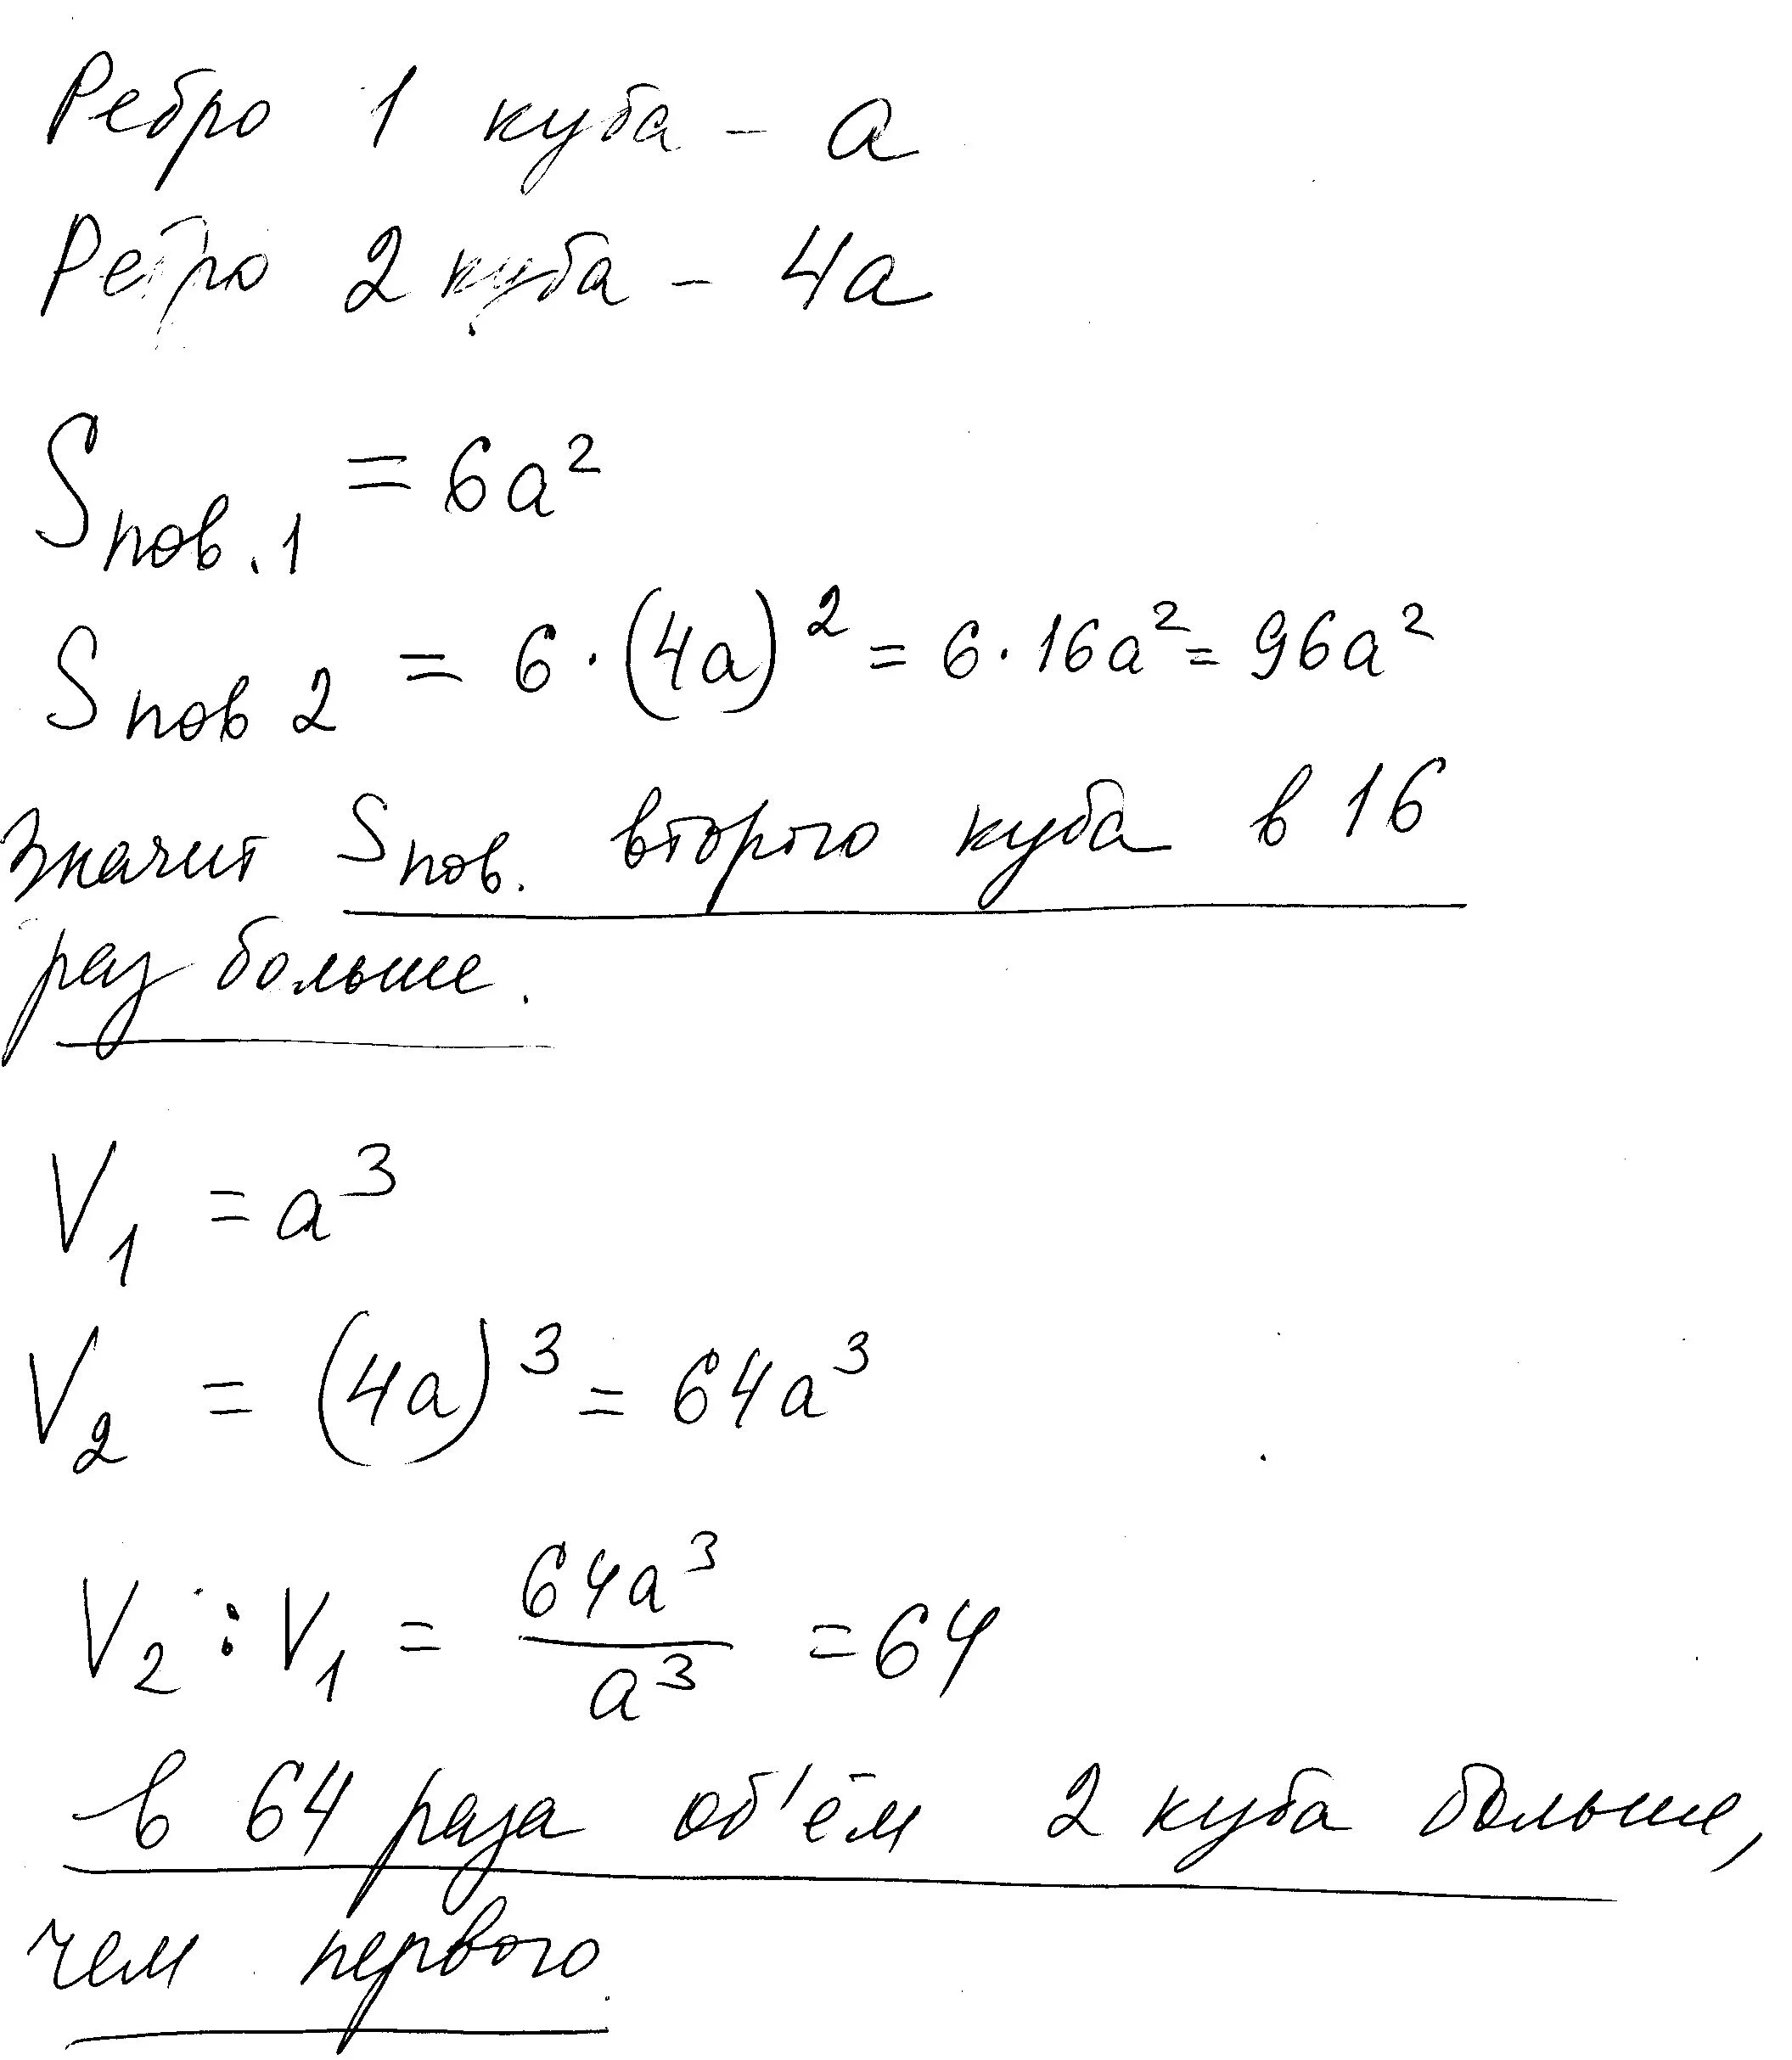 Ребро 1 куба - a
Ребро 2 куба - 4a
Sпов.1 = 6a²
Sпов 2 = 6·(4a)² = 6·16a² = 96a²
Значит Sпов. второго куба в 16
раз больше.
V₁ = a³
V₂ = (4a)³ = 64a³
V₂ : V₁ = 64a³/a³ = 64
в 64 раза об'ём 2 куба больше,
чем первого.